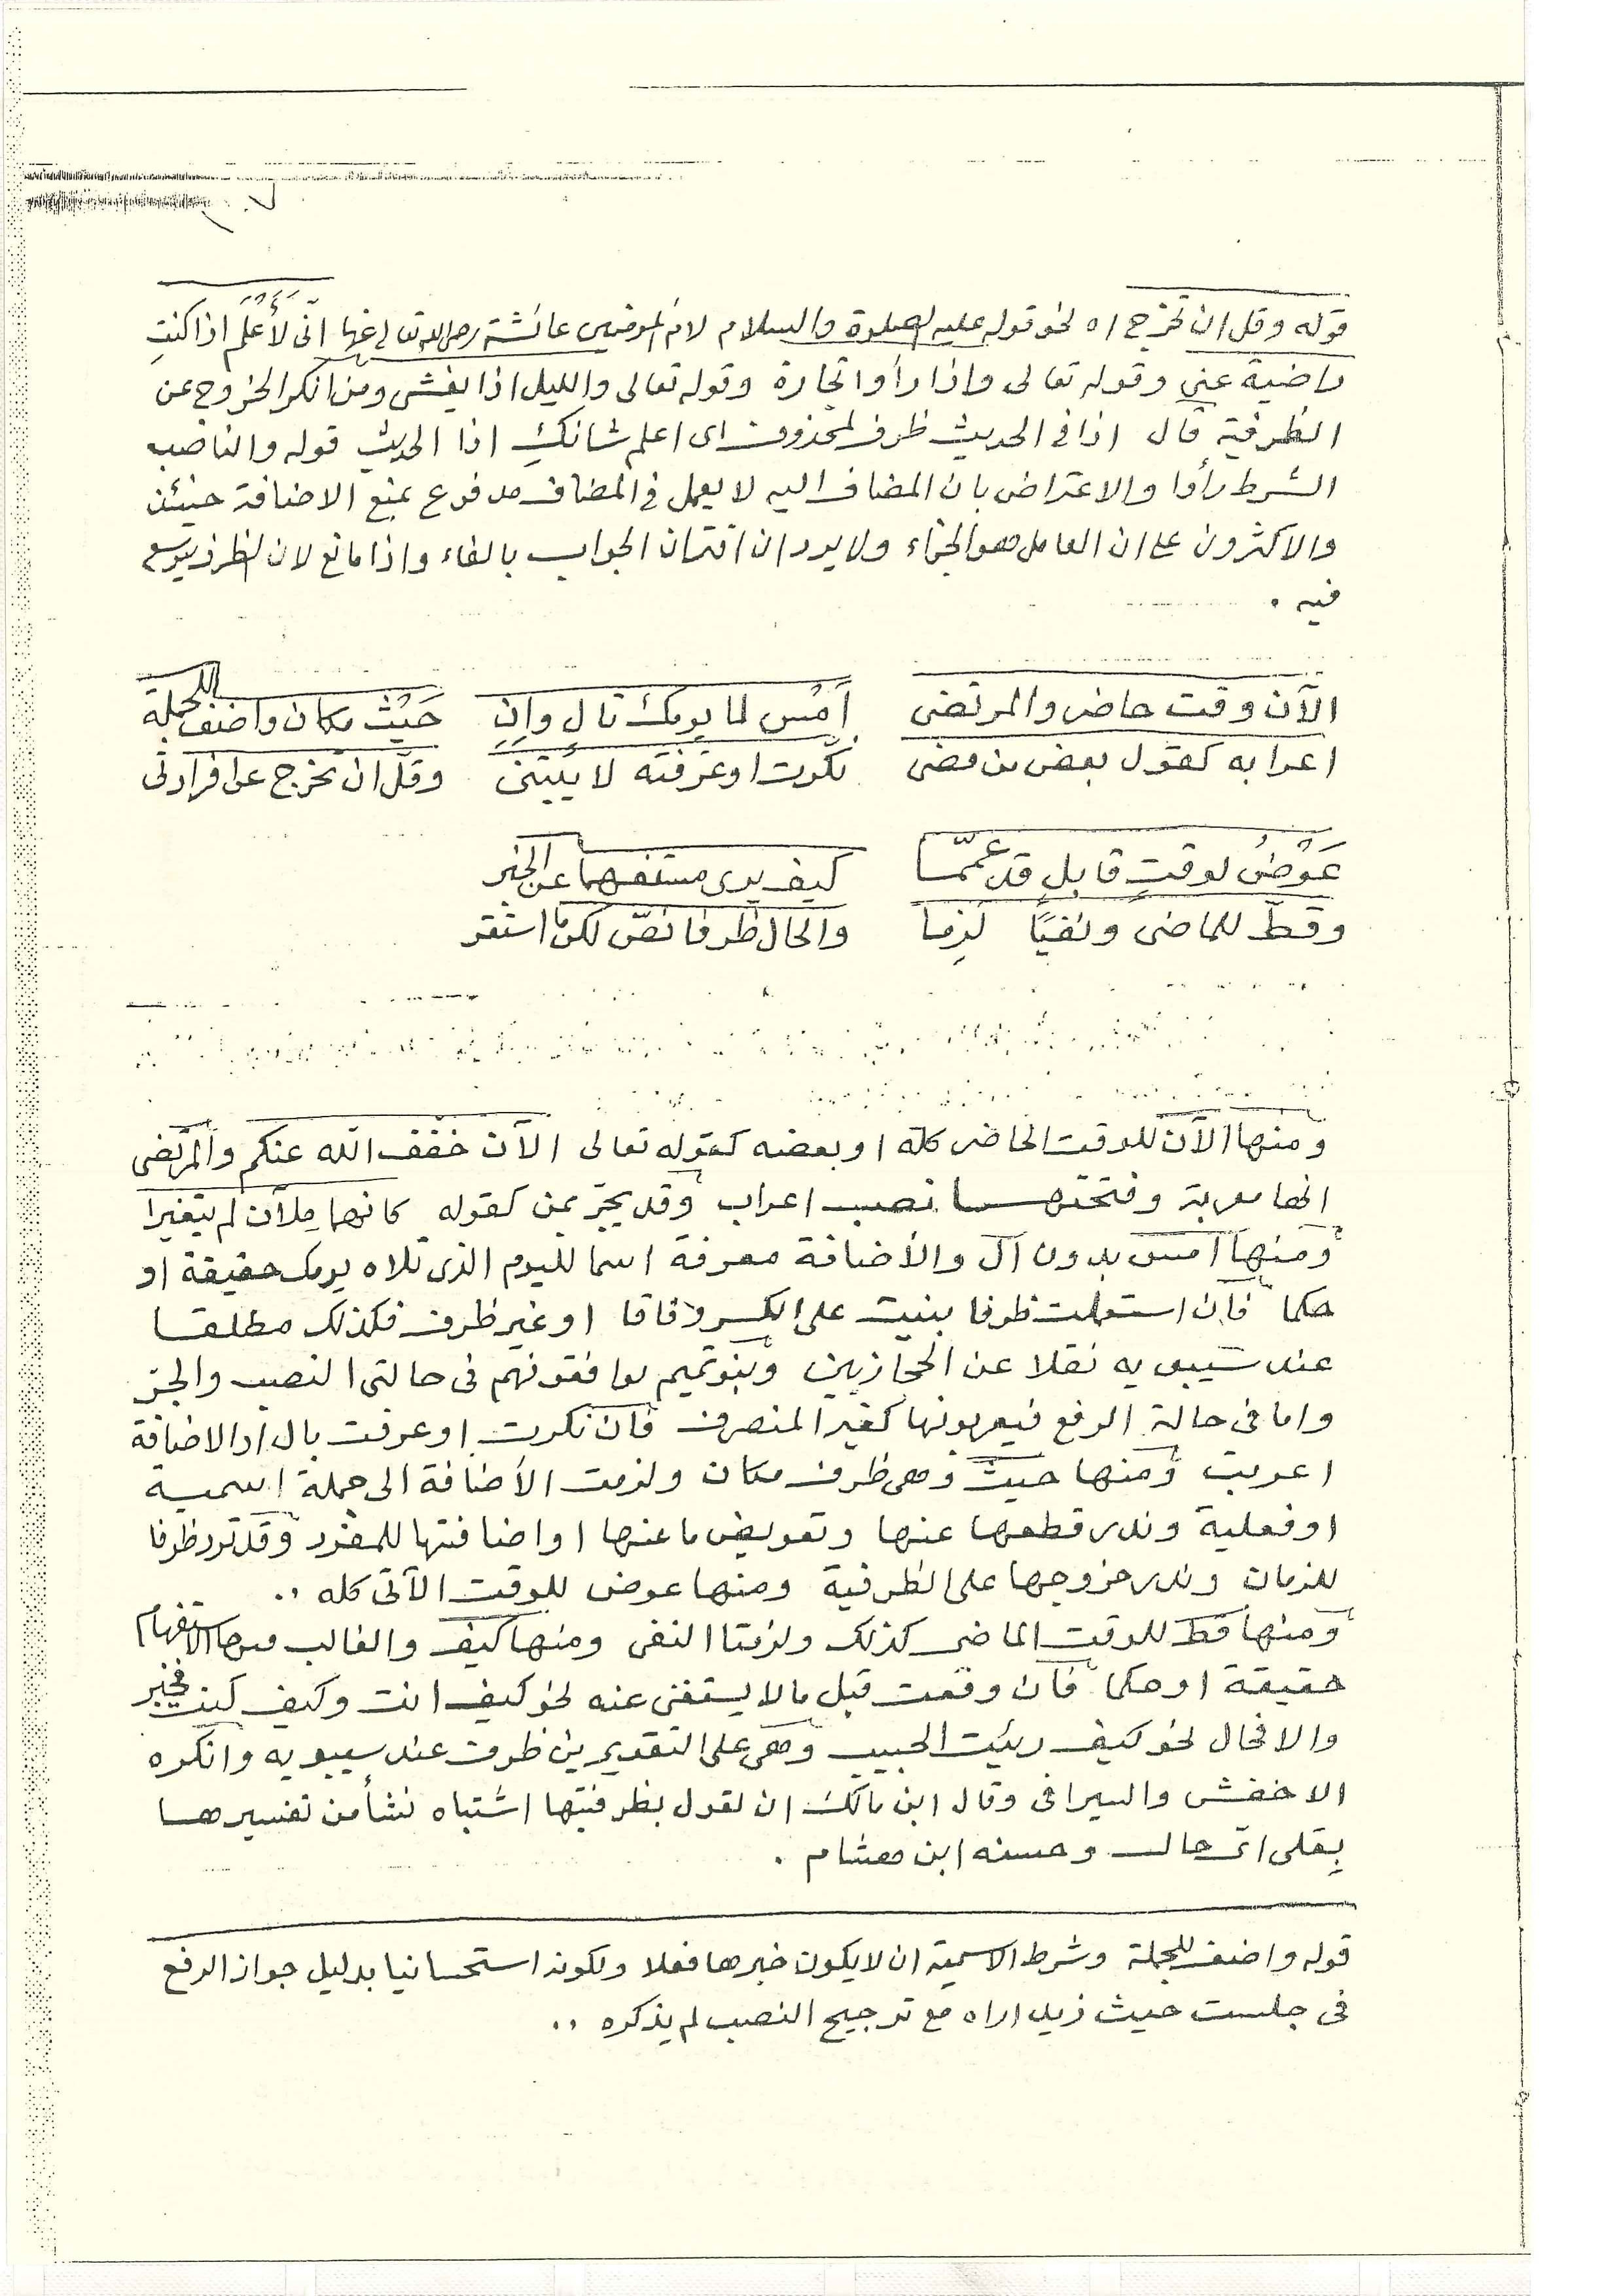 قوله وقل ان تخرج اه نحو قوله عليه الصلوة والسلام لام المؤمنين عائشة رضى الله تعالى عنها انّى لَأَعْلَمُ اذا كنتِ
راضية عنى وقوله تعالى واذا رأوا تجارة وقوله تعالى والليل اذا يغشى ومن انكر الخروج عن
الظرفية قال اذا فى الحديث ظرف لمحذوف اى اعلم شانكِ اذا الحديث قوله والناصب
الشرط رأوا والاعتراض بان المضاف اليه لا يعمل فى المضاف مدفوع بمنع الاضافة حينئذ
والاكثرون على ان العامل هو الجزاء ولا يرد ان اقتران الجواب بالفاء واذا مانع لان الظرف يتوسع
فيه .
الآن وقت حاضر والمرتضى أمْسِ لما يومك تال وإن حَيْثُ مكان واضف للجملة
اعرابه كقول بعض من مضى نكّرت او عرّفته لا يُبْتَنى وقلّ ان تخرج عن افراد تى
عَوْضُ لوقتٍ قابلٍ قد عمّمَّا كيف يرى مستفهما عن الخبر
وقطّ للماضى ونفيًا لزما والحال ظرفا نصّ لكن ما استقر
ومنها الآن للوقت الحاضر كله او بعضه كقوله تعالى الآن خفف الله عنكم والمرتضى
انها معربة وفتحتها نصب اعراب وقد يجرّ بمن كقوله كانهما مِلآن لم يتغيرا
ومنها امس بدون ال والأضافة معرفة اسما لليوم الذى تلاه يومك حقيقة او
حكما فان استعملت ظرفا بنيت على الكسر وفاقا او غير ظرف فكذلك مطلقا
عند سيبويه نقلا عن الحجازيين وبنو تميم يوافقونهم فى حالتى النصب والجرّ
واما فى حالة الرفع فيعربونها كغير المنصرف فان نكرت او عرفت بال او الاضافة
اعربت ومنها حيث وهى ظرف مكان ولزمت الأضافة الى جملة اسمية
او فعلية وندر قطعها عنها وتعويض ما عنها او اضافتها للمفرد وقد ترد ظرفا
للزمان وندر خروجها على الظرفية ومنها عوض للوقت الآتى كله ..
ومنها قط للوقت الماضى كذلك ولزمتا النفى ومنها كيف والغالب فيها الاستفهام
حقيقة او حكما فان وقعت قبل ما لا يستغنى عنه نحو كيف انت وكيف كنت فخبر
والا فحال نحو كيف رئيت الحبيب وهى على التقديرين ظرف عند سيبويه وانكره
الاخفش والسيرافى وقال ابن مالك ان لقول بظرفيتها اشتباه نشأ من تفسيرها
بِعَلى اىّ حال وحسنه ابن هشام .
قوله واضف للجملة وشرط الاسمية ان لا يكون خبرها فعلا ولكونه استحسانيا بدليل جواز الرفع
فى جلست حيث زيد اراه مع ترجيح النصب لم يذكره ..